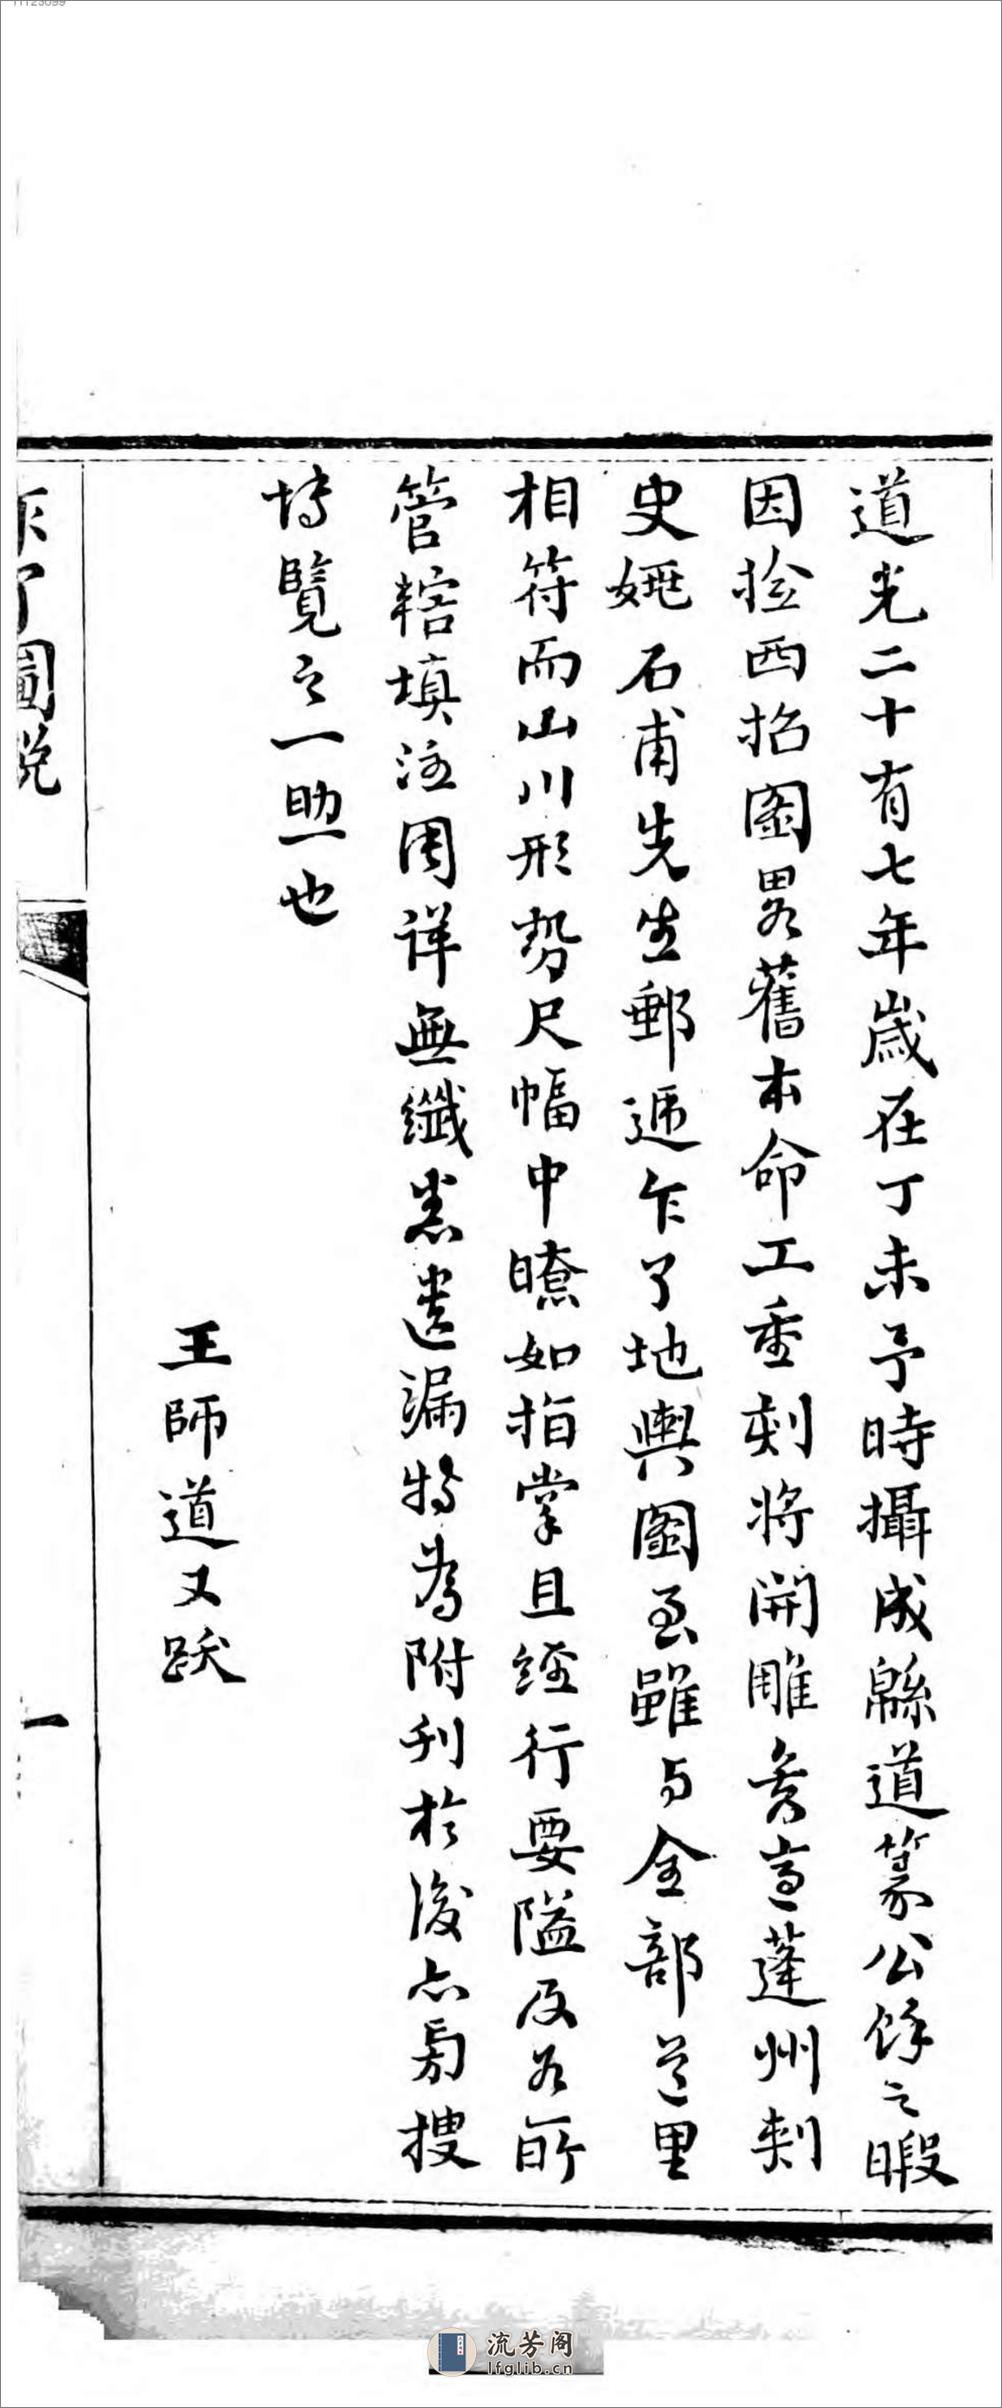 道光二十有七年歲在丁未予時攝成緜道篆公餘之暇
因撿西招圖畧舊本命工重刻將開雕矣適蓬州刺
史姚石甫先生郵遞乍了地輿圖至雖与全部道里
相符而山川形勢尺幅中暸如指掌且經行要隘及各所
管轄填注周詳無纖悉遺漏特為附刊於後亦為搜
博覽之一助也
王師道又跋
乍了圖說
一
流芳阁
lfglib.cn
11125099